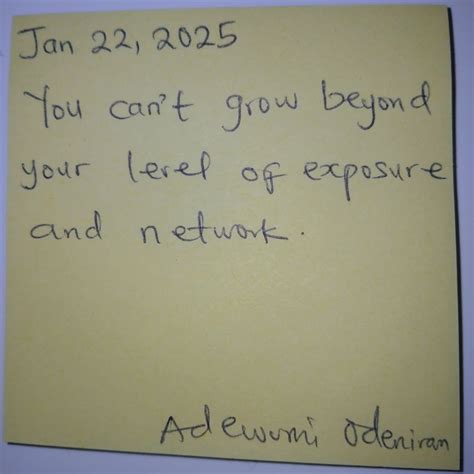 Jan 22, 2025
You can't grow beyond
your level of exposure
and network.
Adewumi Odeniran